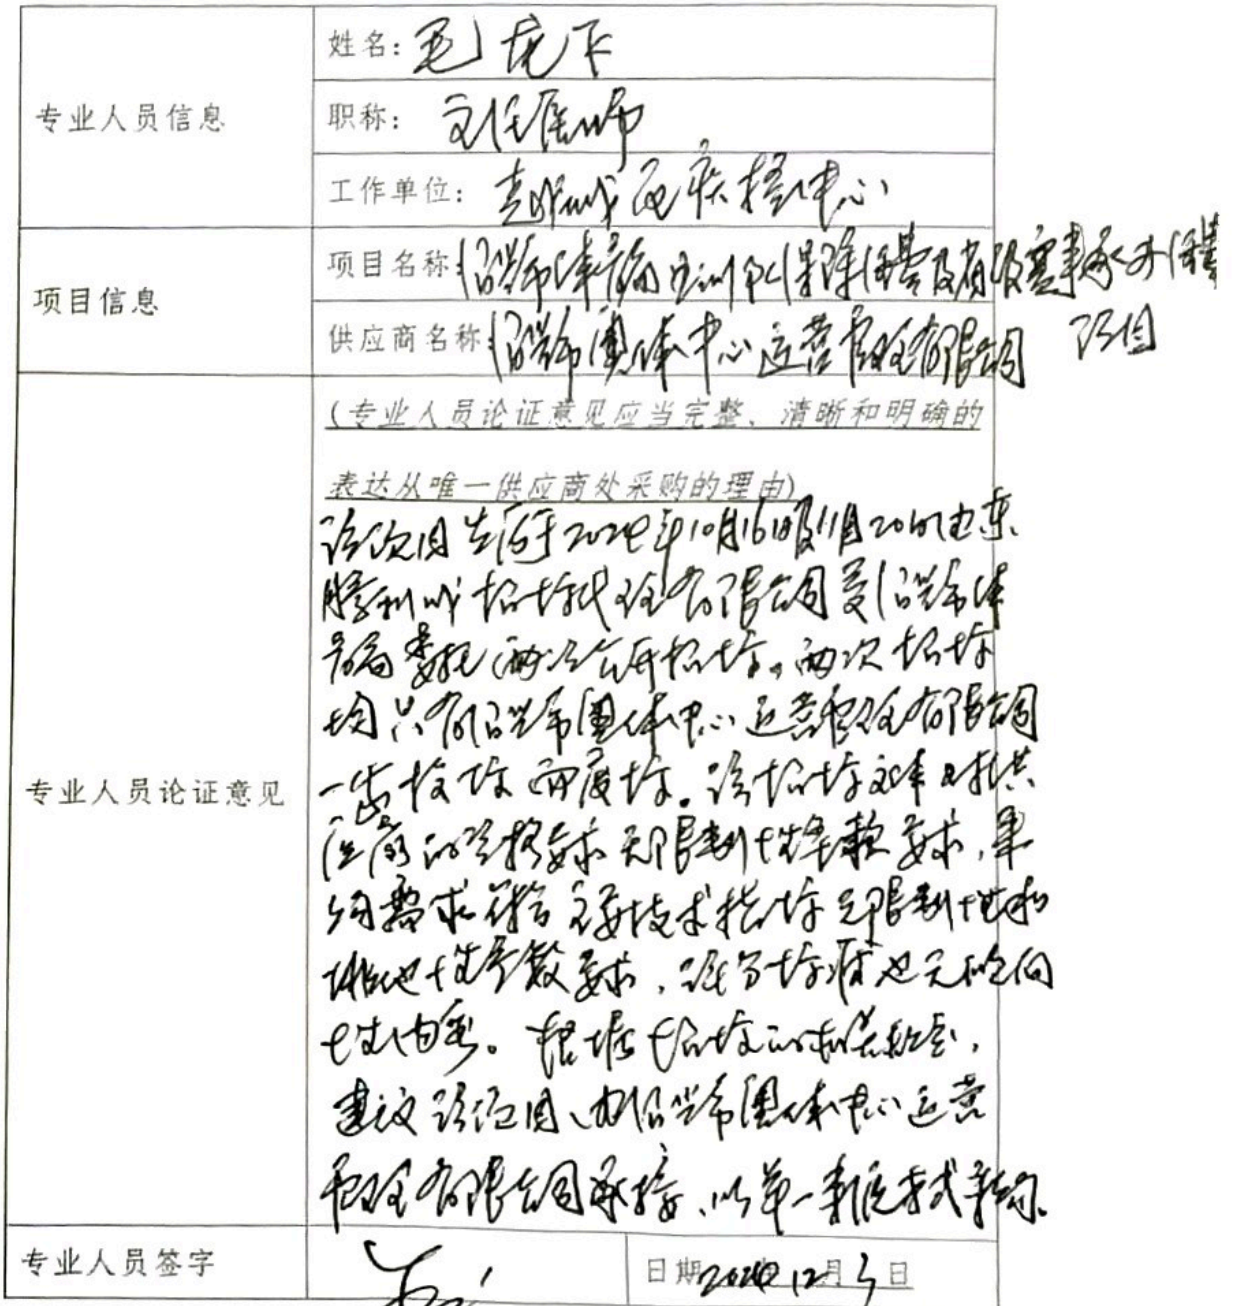 专业人员信息
姓名：毛
职称：主任医师
工作单位：越城区疾控中心
项目信息
项目名称：绍兴市体育局集训队保障经费及省级赛事承办经费
项目
供应商名称：绍兴市奥体中心运营管理有限公司
专业人员论证意见
(专业人员论证意见应当完整、清晰和明确的
表达从唯一供应商处采购的理由)
该项目先后于2024年10月16日及11月20日由
招标代理有限公司受绍兴市体
育局委托两次公开招标。两次招标
均只有绍兴市奥体中心运营管理有限公司
一家投标而废标。该招标文件对供
应商的资格要求无限制性条款要求，采
购需求符合主要技术指标无限制性和
排他性参数要求，评分标准也无倾向
性内容。根据招标的相关规定，
建议该项目由绍兴市奥体中心运营
管理有限公司承接，以单一来源方式采购。
专业人员签字
日期2024年12月3日